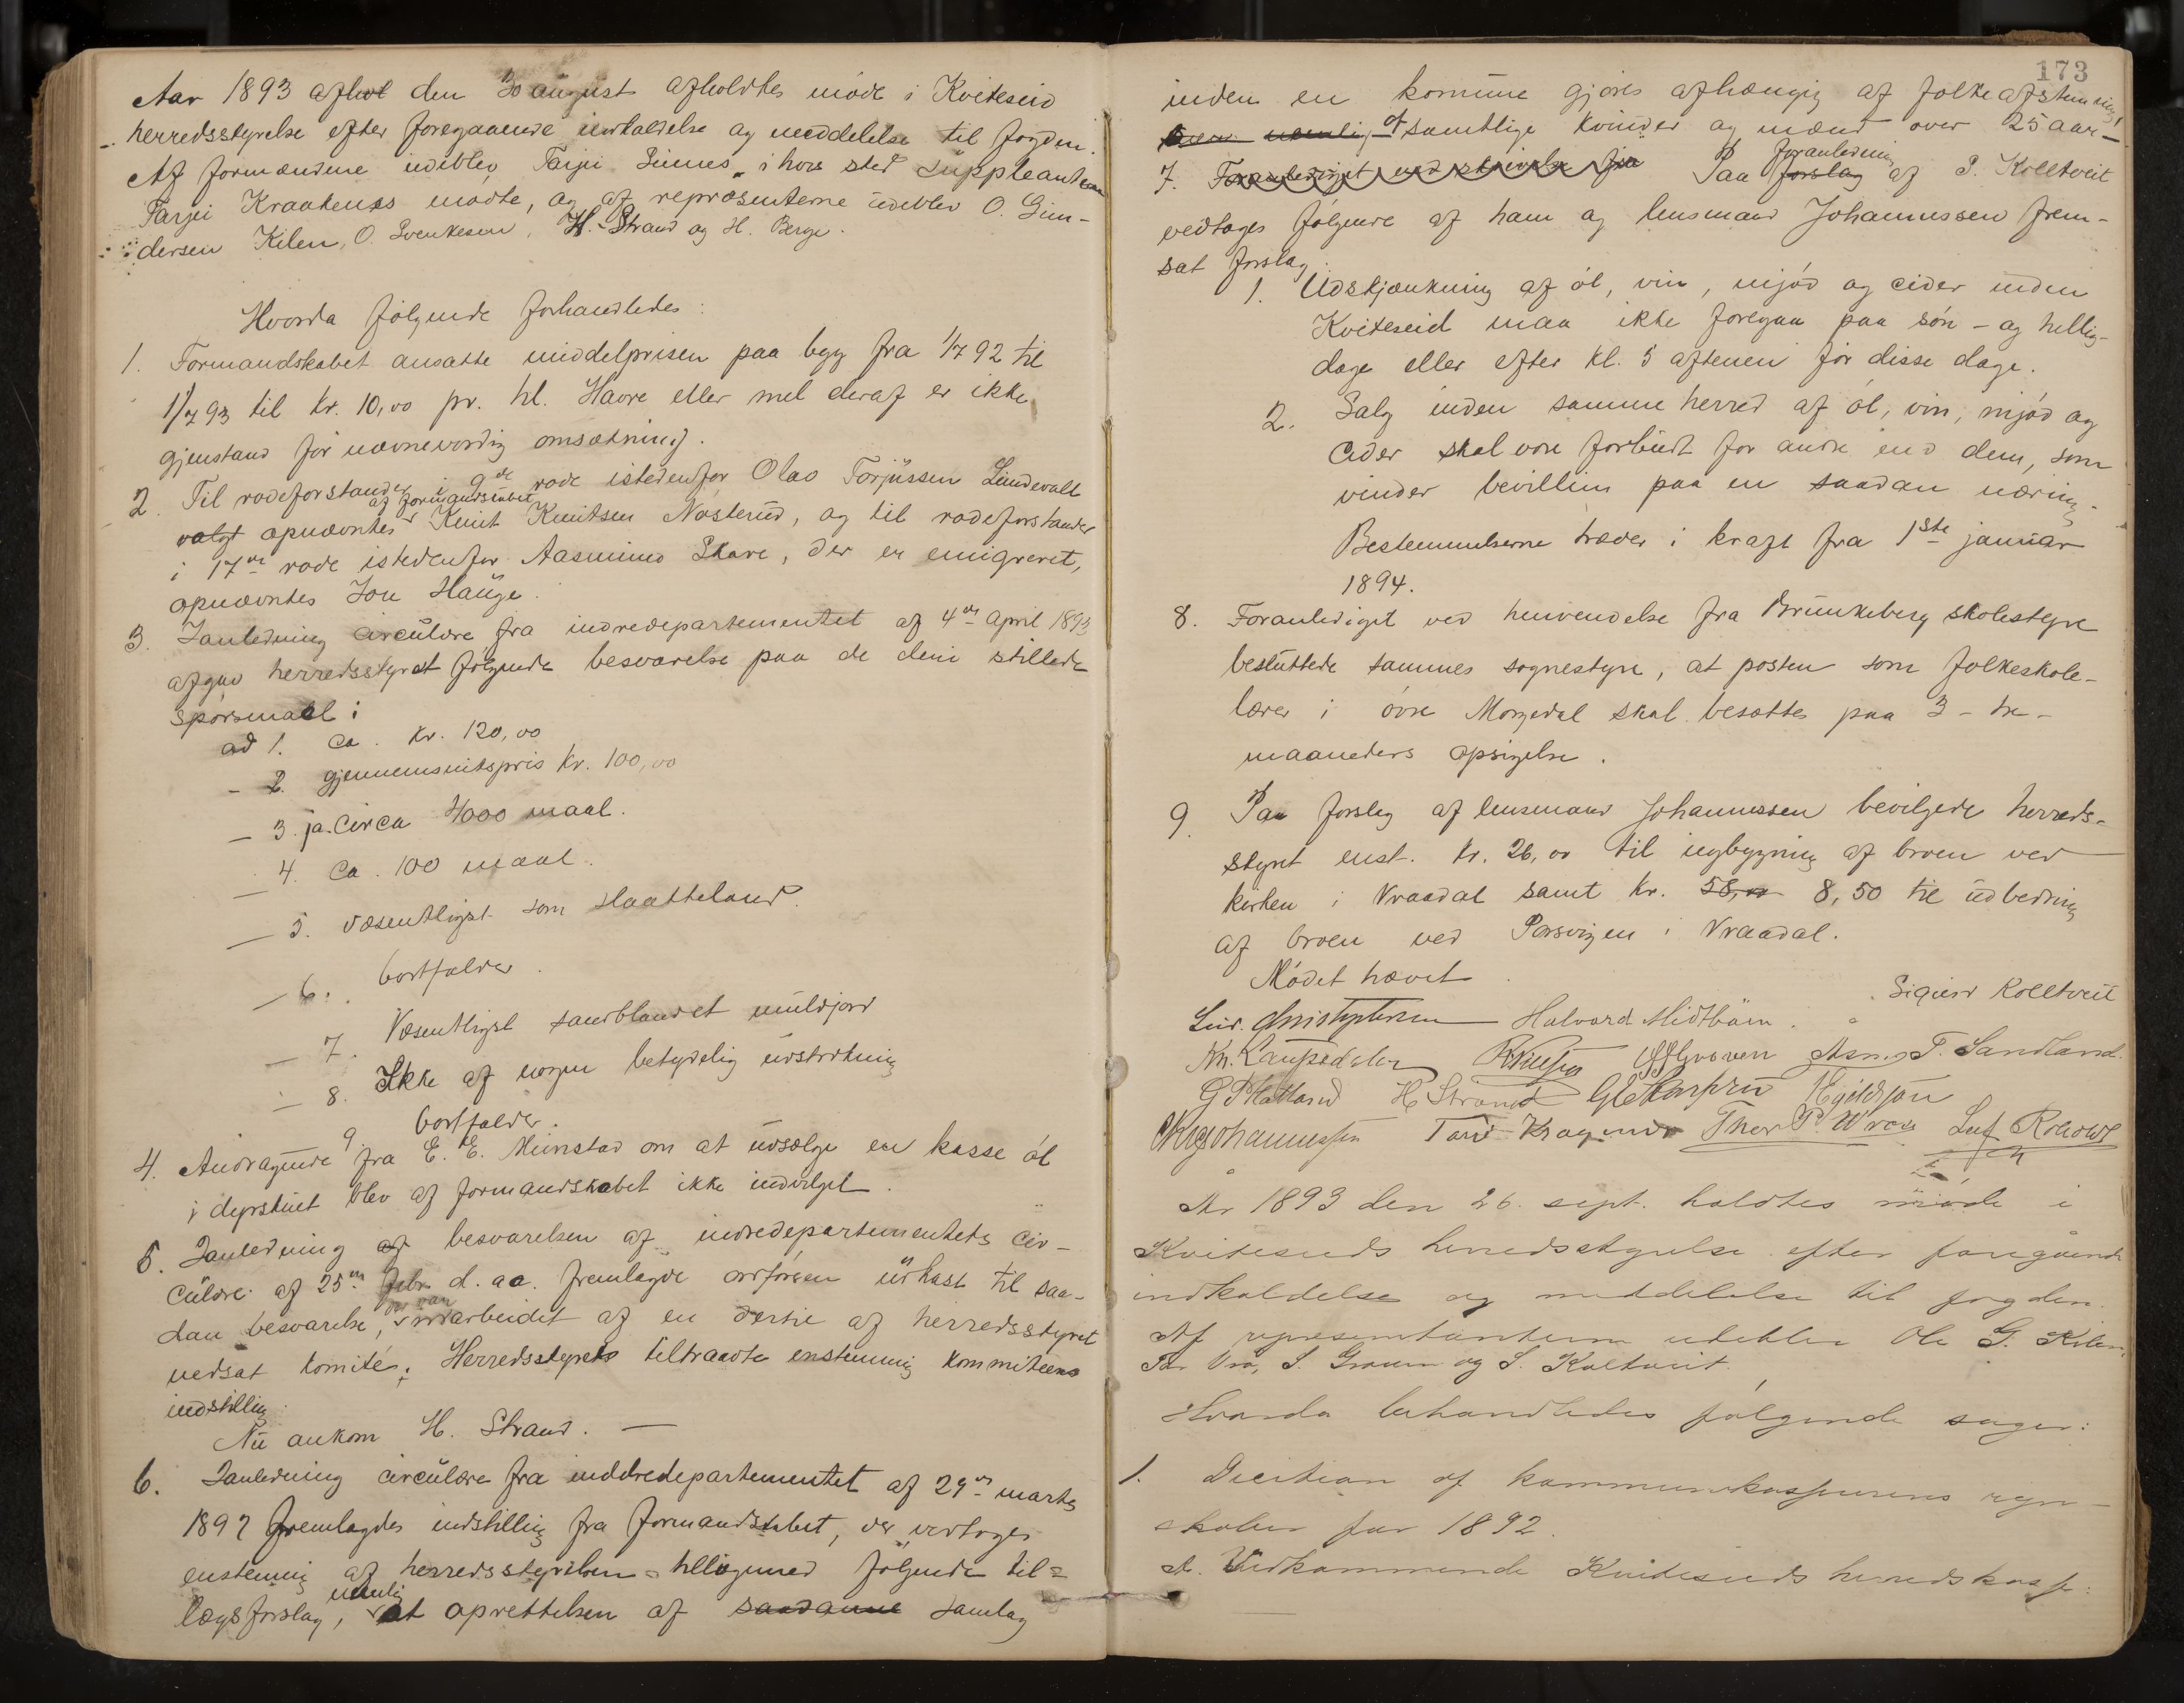 Aar 1893 afhol den 30 august afholdtes møde i Kviteseid
herredsstyrelse efter foregaaende indkaldelse og meddelelse til fogden.
Af formændene udeblev Tarjei Sinnes, i hvis sted suppleanten
Tarjei Kraakenes mødte, og af repræsenterne udeblev O. Gun-
dersen Kilen, O. Svenkesen, H. Strand og H. Berge.
Hvorda følgende forhandledes:
1. Formandskabet ansatte middelprisen paa byg fra 1/7 92 til
1/7 93 til kr. 10,00 pr. hl. Havre eller mel deraf er ikke
gjenstand for nævneværdig omsætning.
2. Til rodeforstander i 9de rode istedenfor Olav Torjussen Lundevall
af formandskabet
valgt opnævntes Knut Knutsen Nøsterud, og til rodeforstander
i 17de rode istedenfor Aasmund Skare, der er emigreret,
opnævntes Jon Hauge.
3. Ianledning circulære fra indredepartementet af 4de april 1893
afgav herredsstyret følgende besvarelse paa de deri stillede
spørsmaal:
ad 1. ca. kr. 120,00
- 2. gjennemsnitspris kr. 100,00
- 3. ja. Circa 4000 maal.
- 4. ca. 100 maal.
- 5. væsentligst som slaatteland.
- 6. bortfalder.
- 7. Væsentligst sandblandet muldjord
- 8. Ikke af nogen betydelig udstrækning
9 bortfalder.
4. Andragende fra E. E. Munstad om at udsælge en kasse øl
i dyrskuet blev af formandskabet ikke indvilget.
5. Ianledning af besvarelsen af indredepartementets cir-
culære af 25de febr. d. aa. fremlagde ordføreren udkast til saa-
der var
dan besvarelse, udarbeidet af en dertil af herredsstyret
nedsat komité; Herredsstyret tiltraadte enstemmig kommiteens
indstilling.
Nu ankom H. Strand. —
6. Ianledning circulære fra inddredepartementet af 29de marts
1892 fremlagdes indstilling fra formandskabet, der vedtoges
enstemmig af herredsstyrelsen tilligemed følgende til=
nemlig
lægsforslag, at oprettelsen af saadanne samlag
173
inden en komune gjøres afhængig af folkeafstemning
af samtlige kvinder og mænd over 25 aar —
foranledning
7. Foranlediget ved skrivelse fra Paa forslag af S. Kolltveit
vedtoges følgende af ham og lensmand Johannessen frem-
sat forslag:
1. Udskjænkning af øl, vin, mjød og cider inden
Kviteseid maa ikke foregaa paa søn- og hellig-
dage eller efter kl. 5 aftenen før disse dage.
2. Salg inden samme herred af øl, vin, mjød og
cider skal være forbudt for andre end dem, som
vinder bevilling paa en saadan næring.
Bestemmelserne træder i kraft fra 1ste januar
1894.
8. Foranlediget ved henvendelse fra Brunkeberg skolestyre
besluttede sammes sognestyre, at posten som folkeskole-
lærer i øvre Morgedal skal besættes paa 3 - tre -
maaneders opsigelse.
9 Paa forslag af lensmand Johannessen bevilgede herreds-
styret enst. kr. 26,00 til nybygning af broen ved
kirken i Vraadal samt kr. 58,00 8,50 til udbedring
af broen ved Porsvigen i Vraadal.
Mødet hævet.
Sigurd Kolltveit
Halvard Midtbøen.
H Strand
Aar 1893 den 26. sept. holdtes møde i
Kviteseids herredsstyrelse efter foregående
indkaldelse og meddelelse til fogden.
Af representanterne udeblev Ole G. Kilen,
Tor Vra, S. Groven og S. Kaltveit.
Hvorda behandledes følgende sager:
1. Decition af kommunekassererens regn-
skaber for 1892.
A. Vedkommende Kviteseids herredskasse: